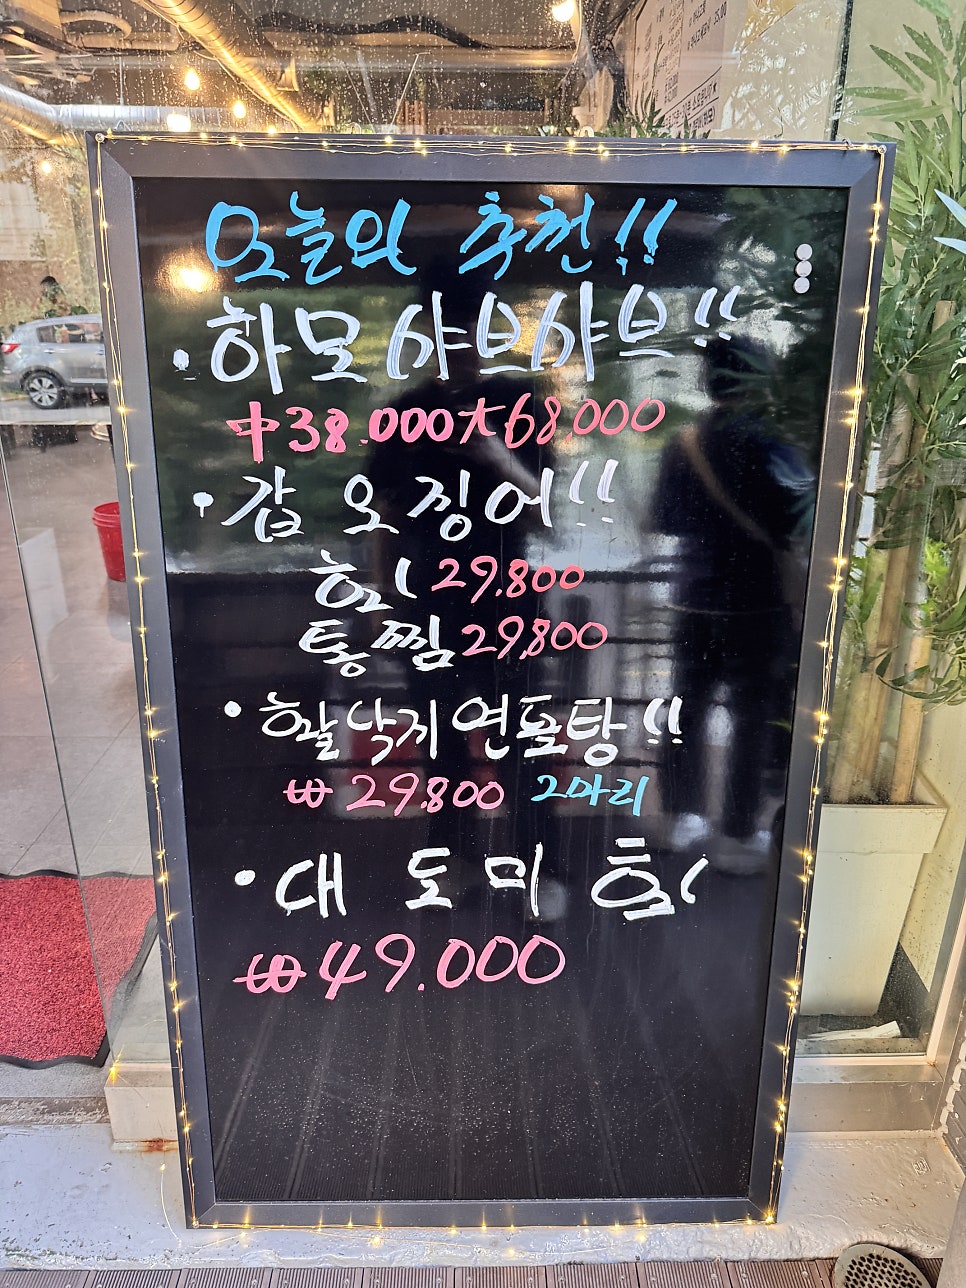 오늘의 추천!!
· 하모 샤브샤브!!
中38.000 大68,000
· 갑오징어!!
회 29.800
통찜 29,800
· 활낙지 연포탕!!
₩29.800 2마리
· 대도미 회
₩49.000